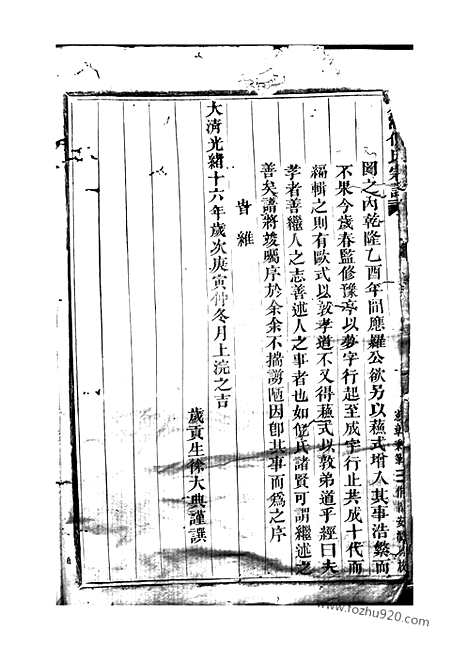 氏宗譜
圖之內乾隆乙酉年間應羅公欲另以蘓式增入其事浩繁而
不果今歲春監修豫亭以夢字行起至成字行止共成十代而
編輯之則有歐式以敦孝道不又得蘓式以敦弟道乎經曰夫
孝者善繼人之志善述人之事者也如侻氏諸賢可謂繼述之
善矣譜將竣囑序於余余不揣謭陋因卽其事而爲之序
旹維
大淸光緒十六年歲次庚寅仲冬月上浣之吉
歲貢生徐大典謹譔
www.fozhu920.com